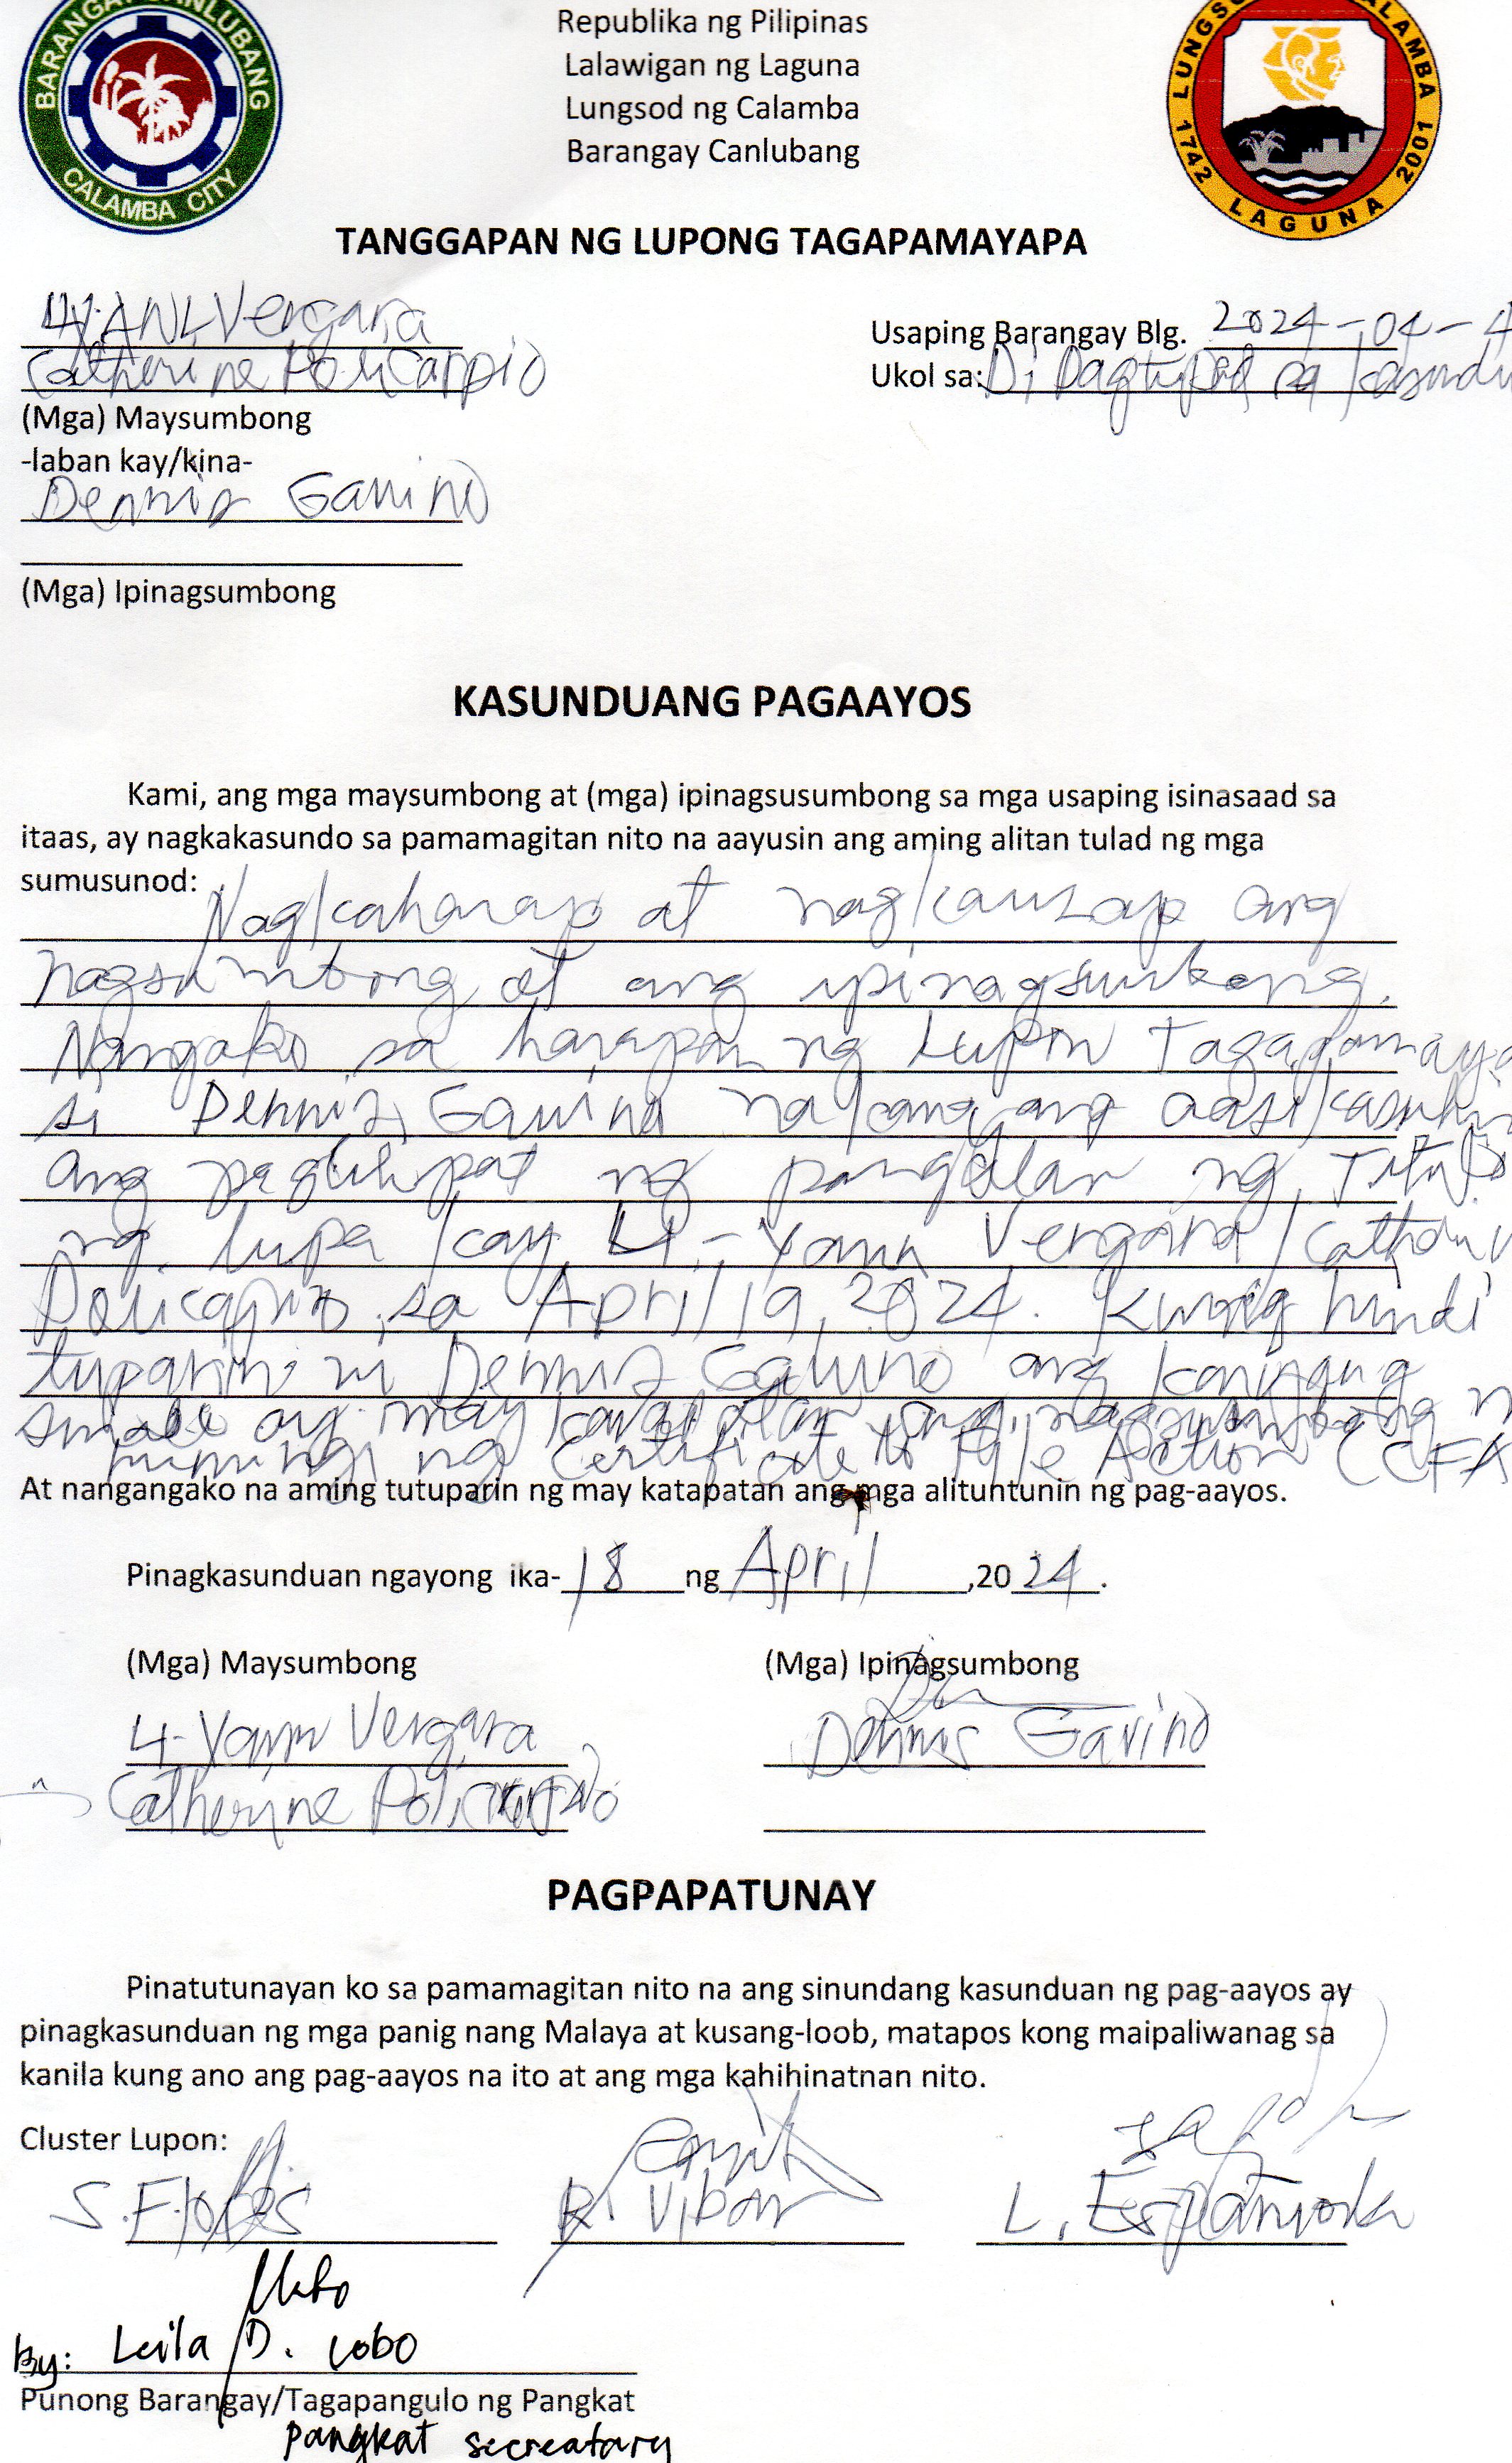 BARANGAY CANLUBANG
CALAMBA CITY
Republika ng Pilipinas
Lalawigan ng Laguna
Lungsod ng Calamba
Barangay Canlubang
CALAMBA
1742 LAGUNA 2001
TANGGAPAN NG LUPONG TAGAPAMAYAPA
Vergara
Catherine Policarpio
(Mga) Maysumbong
-laban kay/kina-
Dennis Gavino
(Mga) Ipinagsumbong
Usaping Barangay Blg. 2024-04-4
Ukol sa: Di Pagtupad sa kasundu
KASUNDUANG PAGAAYOS
Kami, ang mga maysumbong at (mga) ipinagsusumbong sa mga usaping isinasaad sa
itaas, ay nagkakasundo sa pamamagitan nito na aayusin ang aming alitan tulad ng mga
sumusunod: Nagkaharap at nagkausap ang
nagsumbong at ang ipinagsumbong.
Nangako sa harapan ng Lupon Tagapamaya
si Dennis Gavino na kanyang aasikasuhin
ang paglilipat ng pangalan ng Titulo
ng lupa kay Li-Yann Vergara/Catherin
Policarpio sa April 19, 2024. Kung hindi
tuparin ni Dennis Gavino ang kanyang
ay may karapatan ang nagsumbong n
humingi ng Certificate to File Action (CFA
At nangangako na aming tutuparin ng may katapatan ang mga alituntunin ng pag-aayos.
Pinagkasunduan ngayong ika-18 ng April ,2024.
(Mga) Maysumbong
(Mga) Ipinagsumbong
Li-Yann Vergara
Dennis Gavino
Catheryne Policarpio
PAGPAPATUNAY
Pinatutunayan ko sa pamamagitan nito na ang sinundang kasunduan ng pag-aayos ay
pinagkasunduan ng mga panig nang Malaya at kusang-loob, matapos kong maipaliwanag sa
kanila kung ano ang pag-aayos na ito at ang mga kahihinatnan nito.
Cluster Lupon:
S. Flores R. Vibar L. Españiola
By: Leila D. Lobo
Punong Barangay/Tagapangulo ng Pangkat
Pangkat secreatary